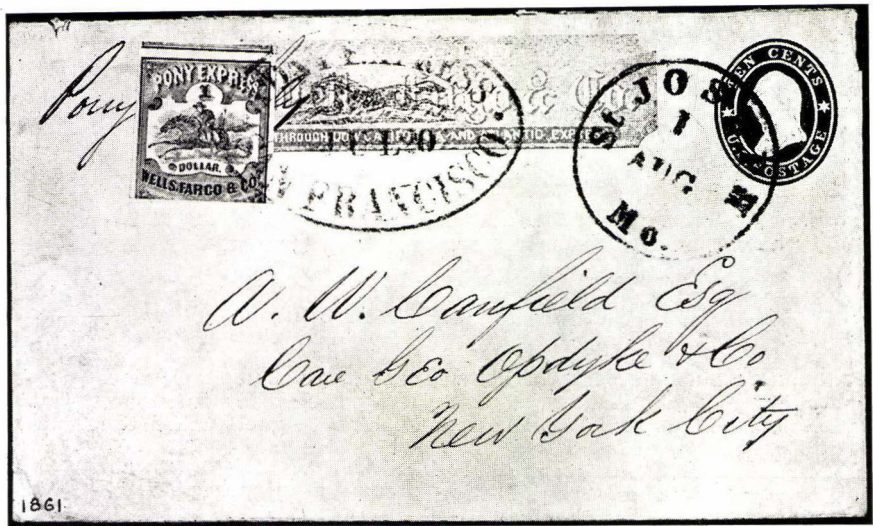 Pony
PONY EXPRESS
1
DOLLAR.
WELLS, FARGO & CO.
THROUGH OUR CALIFORNIA AND ATLANTIC EXPRESS
FRANCISCO.
St JOSEPH
1
AUG
Mo.
TEN CENTS
U.S. POSTAGE
W. W. Canfield Esq
Care Geo Opdyke & Co
New York City
1861